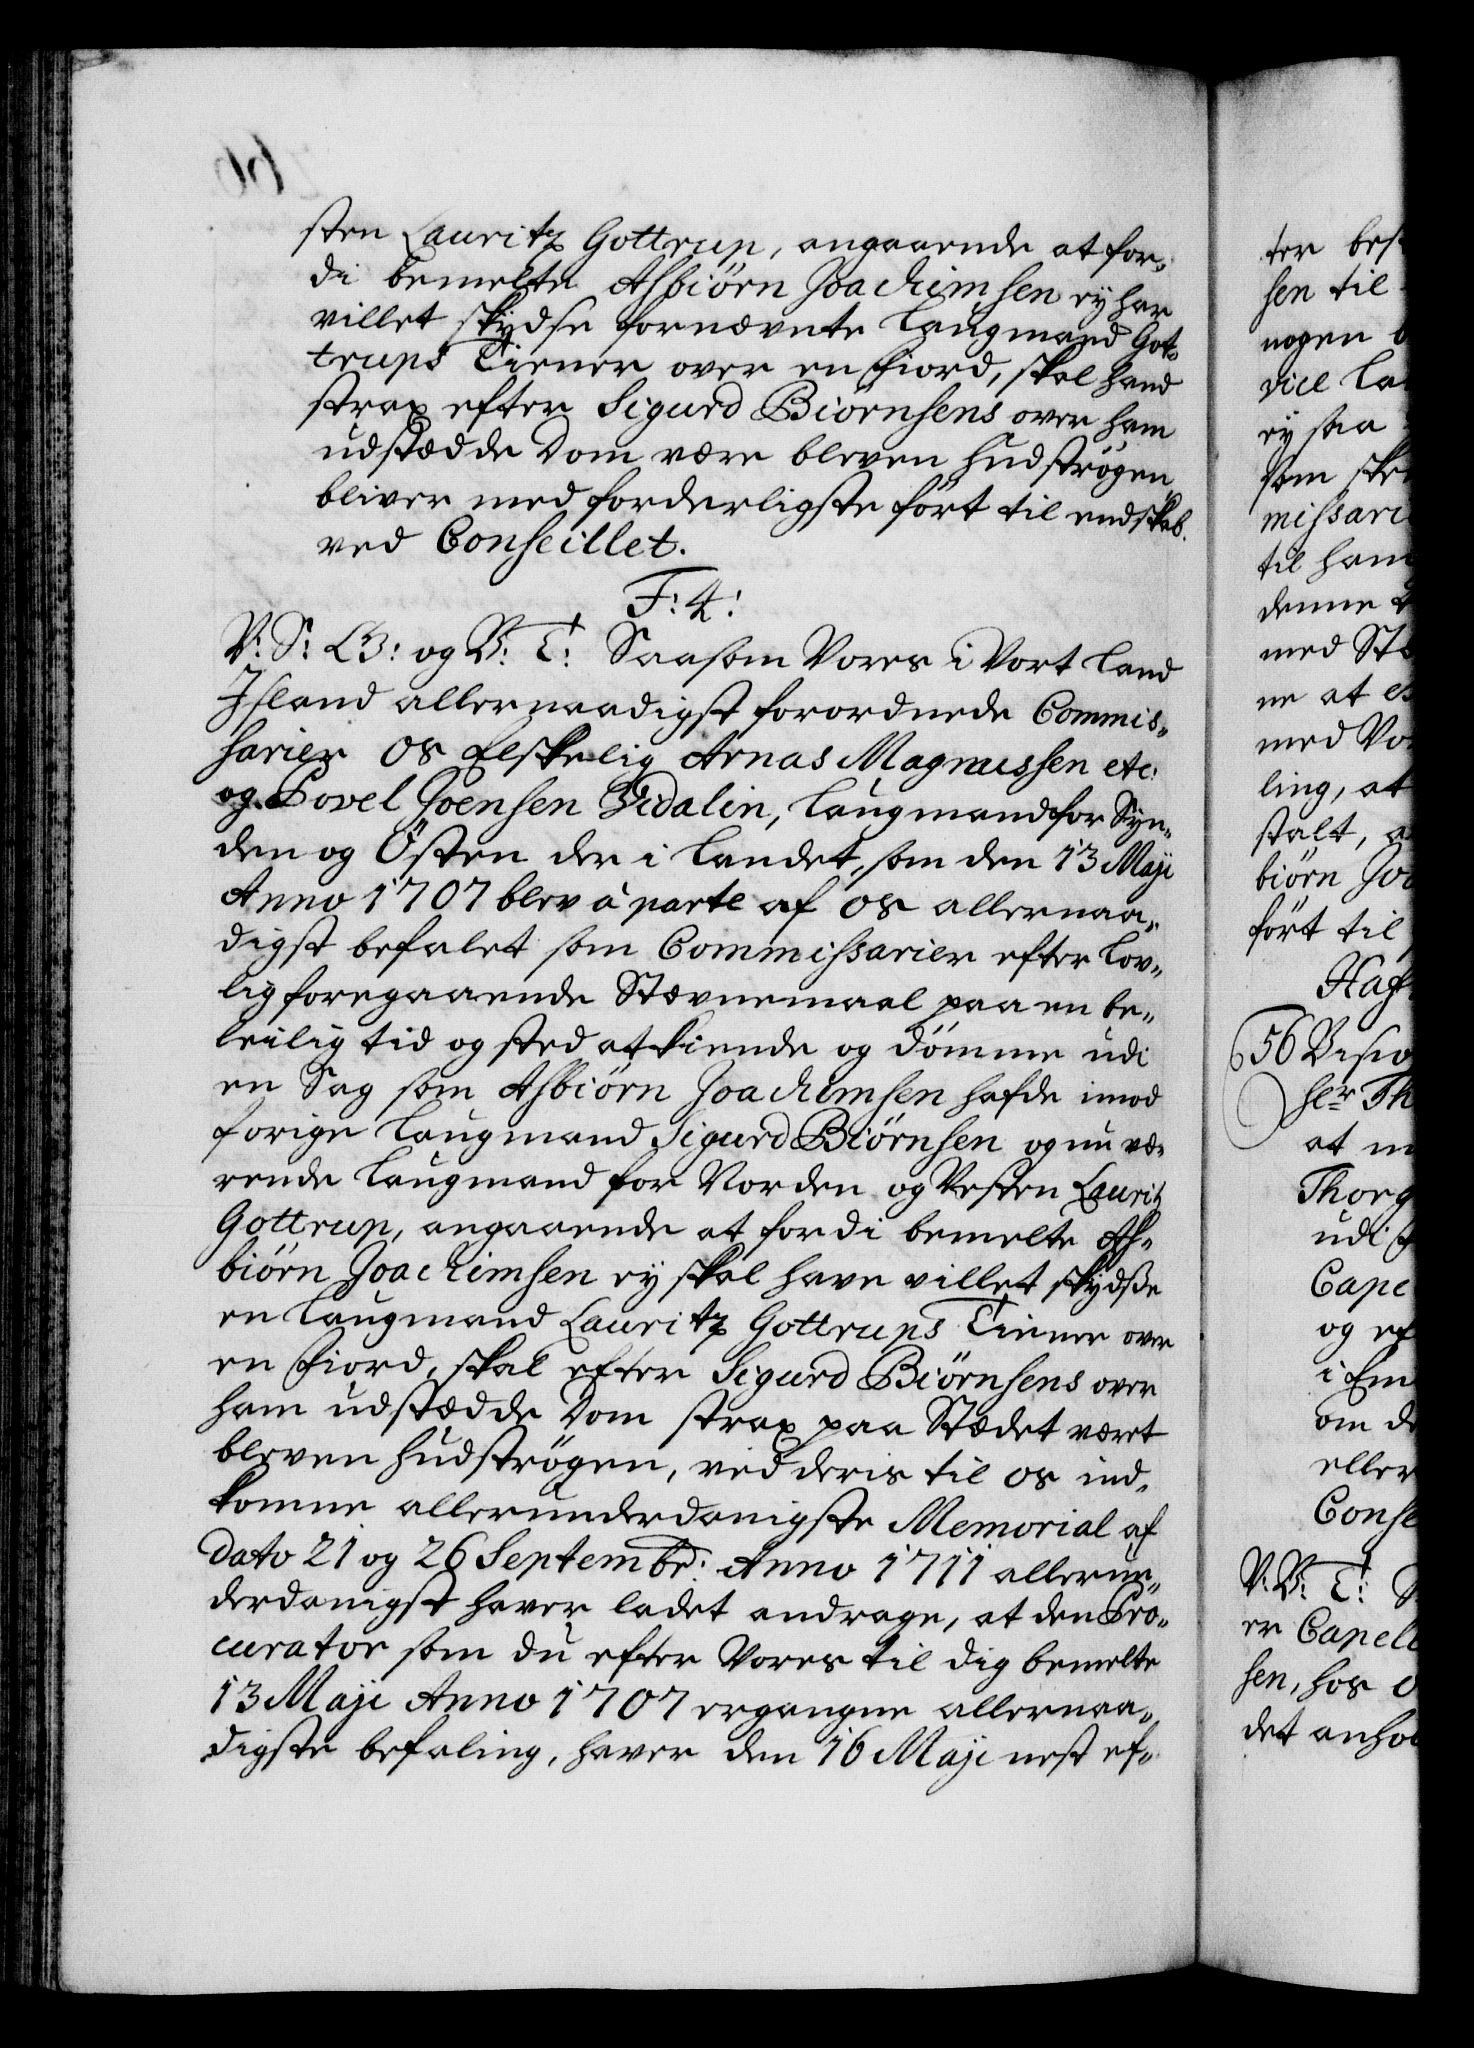 sten Lauritz Gottrup, angaaende at for-
di bemelte Asbiörn Joachimsen ey har
villet skÿdse fornævnte Laugmand Got-
trups Tiener over en Fiord, skal hand
strax efter Sigurd Biörnsens over ham
udstædde Dom være bleven hudströgen,
bliver med forderligste fört til endskab.
ved Conseillet.
F: 4:
V: S: G: og V: T: Saasom Vores i Vort Land
Jsland allernaadigst forordnede Commis-
sarier os Elskelig Arnas Magnussen etc:
og Povel Joensen Vidalin, Laugmand for Syn-
den og Östen der i Landet, som den 13 Maji
Anno 1707 blev à parte af os allernaa-
digst befalet som Commissarier efter Lov-
lig foregaaende Stævnemaal paa en be-
leilig tid og sted at kiende og dömme udi
en Sag som Asbiörn Joachimsen hafde imod
forige Laugmand Sigurd Biörnsen og nu væ-
rende Laugmand for Norden og Vesten Lauritz
Gottrup, angaaende at fordi bemelte As-
biörn Joachimsen ey skal have villet skÿdse
en Laugmand Lauritz Gottrups Tiener over
en Fiord, skal efter Sigurd Biörnsens over
ham udstædde Dom strax paa Stædet været
bleven hudströgen, ved deris til os ind-
komne allerunderdanigste Memorial af
Dato 21 og 26 Septembr: Anno 1711 allerun-
derdanigst haver ladet andrage, at den Pro-
curator som du efter Vores til dig bemelte
13 Maji Anno 1707 ergangne allernaa-
digste befaling, haver den 16 Maji nest ef-
ter
sen til
nogen
vice
ey saa
som
missari
til ham
denne
med
ne at
med
ling, at
stalt,
biörn
fört til
56
at
Thorg
udi
Cape
og ef
i
om de
eller
Conse
V: V: T:
er Capell
sen, hos
det anho